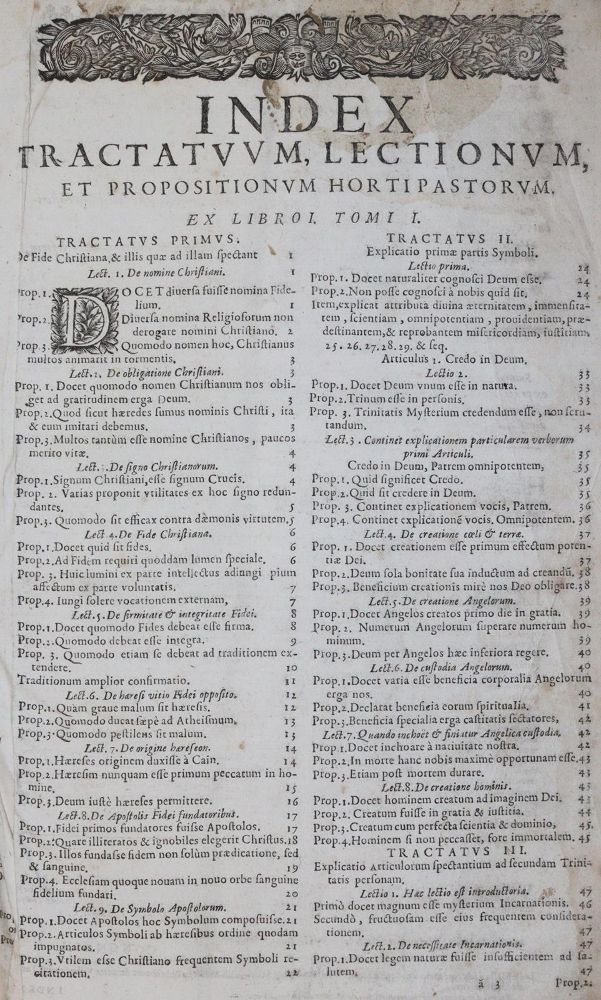 INDEX
TRACTATVVM, LECTIONVM,
ET PROPOSITIONVM HORTI PASTORVM,
EX LIBRO I. TOMI I.
TRACTATVS PRIMVS.
De Fide Christiana, & illis quæ ad illam spectant 1
Lect. 1. De nomine Christiani. 1
Prop. 1. DOCET diuersa fuisse nomina Fide-
lium. 1
Prop. 2. Diuersa nomina Religiosorum non
derogare nomini Christiano. 2
Prop. 3 Quomodo nomen hoc, Christianus
multos animarit in tormentis. 3
Lect. 2. De obligatione Christiani. 3
Prop. 1. Docet quomodo nomen Christianum nos obli-
get ad gratitudinem erga Deum. 3
Prop. 2. Quod sicut hæredes sumus nominis Christi, ita
& eum imitari debemus. 3
Prop. 3. Multos tantùm esse nomine Christianos, paucos
merito vitæ. 4
Lect. 3. De signo Christianorum. 4
Prop. 1. Signum Christiani, esse signum Crucis. 4
Prop. 2. Varias proponit vtilitates ex hoc signo redun-
dantes. 5
Prop. 3. Quomodo sit efficax contra dæmonis virtutem. 5
Lect. 4. De Fide Christiana. 6
Prop. 1. Docet quid sit fides. 6
Prop. 2. Ad Fidem requiri quoddam lumen speciale. 6
Prop. 3. Huic lumini ex parte intellectus adiungi pium
affectum ex parte voluntatis. 7
Prop. 4. Iungi solere vocationem externam, 7
Lect. 5. De firmitate & integritate Fidei. 8
Prop. 1. Docet quomodo Fides debeat esse firma. 8
Prop. 2. Quomodo debeat esse integra. 9
Prop. 3. Quomodo etiam se debeat ad traditionem ex-
tendere. 10
Traditionum amplior confirmatio. 11
Lect. 6. De hæresi vitio Fidei opposito. 12
Prop. 1. Quàm graue malum sit hæresis. 12
Prop. 2. Quomodo ducat sæpè ad Atheismum. 13
Prop. 3. Quomodo pestilens sit malum. 13
Lect. 7. De origine hæreseon. 14
Prop. 1. Hæreses originem duxisse à Cain. 14
Prop. 2. Hæresim nunquam esse primum peccatum in ho-
mine. 15
Prop. 3. Deum iustè hæreses permittere. 16
Lect. 8. De Apostolis Fidei fundatoribus. 17
Prop. 1. Fidei primos fundatores fuisse Apostolos. 17
Prop. 2. Quare illiteratos & ignobiles elegerit Christus. 18
Prop. 3. Illos fundasse fidem non solùm prædicatione, sed
& sanguine. 19
Prop. 4. Ecclesiam quoque nouam in nouo orbe sanguine
fidelium fundari. 20
Lect. 9. De Symbolo Apostolorum. 21
Prop. 1. Docet Apostolos hoc Symbolum composuisse. 21
Prop. 2. Articulos Symboli ab hæresibus ordine quodam
impugnatos. 21
Prop. 3. Vtilem esse Christiano frequentem Symboli re-
citationem. 22
TRACTATVS II.
Explicatio primæ partis Symboli.
Lectio prima. 24
Prop. 1. Docet naturaliter cognosci Deum esse. 24
Prop. 2. Non posse cognosci à nobis quid sit. 24
Item, explicat attributa diuina æternitatem, immensita-
tem, scientiam, omnipotentiam, prouidentiam, præ-
destinantem, & reprobantem misericordiam, iustitiam.
25. 26. 27. 28. 29. & seq.
Articulus 1. Credo in Deum.
Lectio 2. 33
Prop. 1. Docet Deum vnum esse in natura. 33
Prop. 2. Trinum esse in personis. 33
Prop. 3. Trinitatis Mysterium credendum esse, non scru-
tandum. 34
Lect. 3. Continet explicationem particularem verborum
primi Articuli. 35
Credo in Deum, Patrem omnipotentem, 35
Prop. 1. Quid significet Credo. 35
Prop. 2. Quid sit credere in Deum. 35
Prop. 3. Continet explicationem vocis, Patrem. 36
Prop. 4. Continet explicationẽ vocis. Omnipotentem. 36
Lect. 4. De creatione cœli & terræ. 37
Prop. 1. Docet creationem esse primum effectum poten-
tiæ Dei. 37
Prop. 2. Deum sola bonitate sua inductum ad creandũ. 38
Prop. 3. Beneficium creationis mirè nos Deo obligare. 38
Lect. 5. De creatione Angelorum. 39
Prop. 1. Docet Angelos creatos primo die in gratia. 39
Prop. 2. Numerum Angelorum superare numerum ho-
minum. 39
Prop. 3. Deum per Angelos hæc inferiora regere. 40
Lect. 6. De custodia Angelorum. 40
Prop. 1. Docet varia esse beneficia corporalia Angelorum
erga nos. 40
Prop. 2. Declarat beneficia eorum spiritualia. 41
Prop. 3. Beneficia specialia erga castitatis sectatores, 42
Lect. 7. Quando inchoet & finiatur Angelica custodia. 42
Prop. 1. Docet inchoare à natiuitate nostra. 42
Prop. 2. In morte hanc nobis maximè opportunam esse. 43
Prop. 3. Etiam post mortem durare. 43
Lect. 8. De creatione hominis. 43
Prop. 1. Docet hominem creatum ad imaginem Dei. 43
Prop. 2. Creatum fuisse in gratia & iustitia. 44
Prop. 3. Creatum cum perfecta scientia & dominio, 45
Prop. 4. Hominem si non peccasset, fore immortalem. 45
TRACTATVS III.
Explicatio Articulorum spectantium ad secundam Trini-
tatis personam.
Lectio 1. Hæc lectio est introductoria. 47
Primò docet magnum esse mysterium Incarnationis. 46
Secundò, fructuosam esse eius frequentem considera-
tionem. 47
Lect. 2. De necessitate Incarnationis. 47
Prop. 1. Docet legem naturæ fuisse insufficientem ad sa-
lutem. 47
ã 3 Prop. 2.